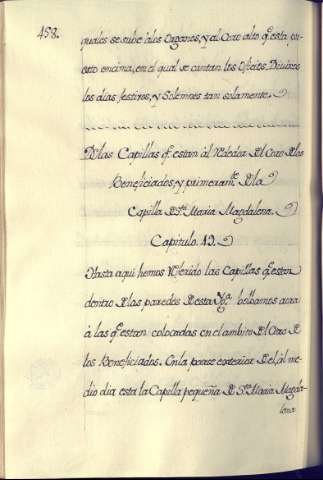 458.
quales se sube alos Organos, y al Coro alto q̃ esta pu-
esto encima, en el qual se cantan los Oficios Divinos
los dias festivos, y Solemnes tan solamente.
Delas Capillas q̃ estan àl Rededor Del Coro Delos
Beneficiados, y primeramᵉ. Dela
Capilla D Sᵗᵃ. Maria Magdalena.
Capitulo. 13.
Hasta aqui hemos Referido las Capillas q̃ estan
dentro Delas paredes Desta Ygᵃ. bolbamos aora
à las q̃ estan colocadas en el ambito Del Coro D
los Beneficiados. En la parte exterior Del, àl me-
dio dia esta la Capilla pequeña D Sᵗᵃ. Maria Magda-
lena